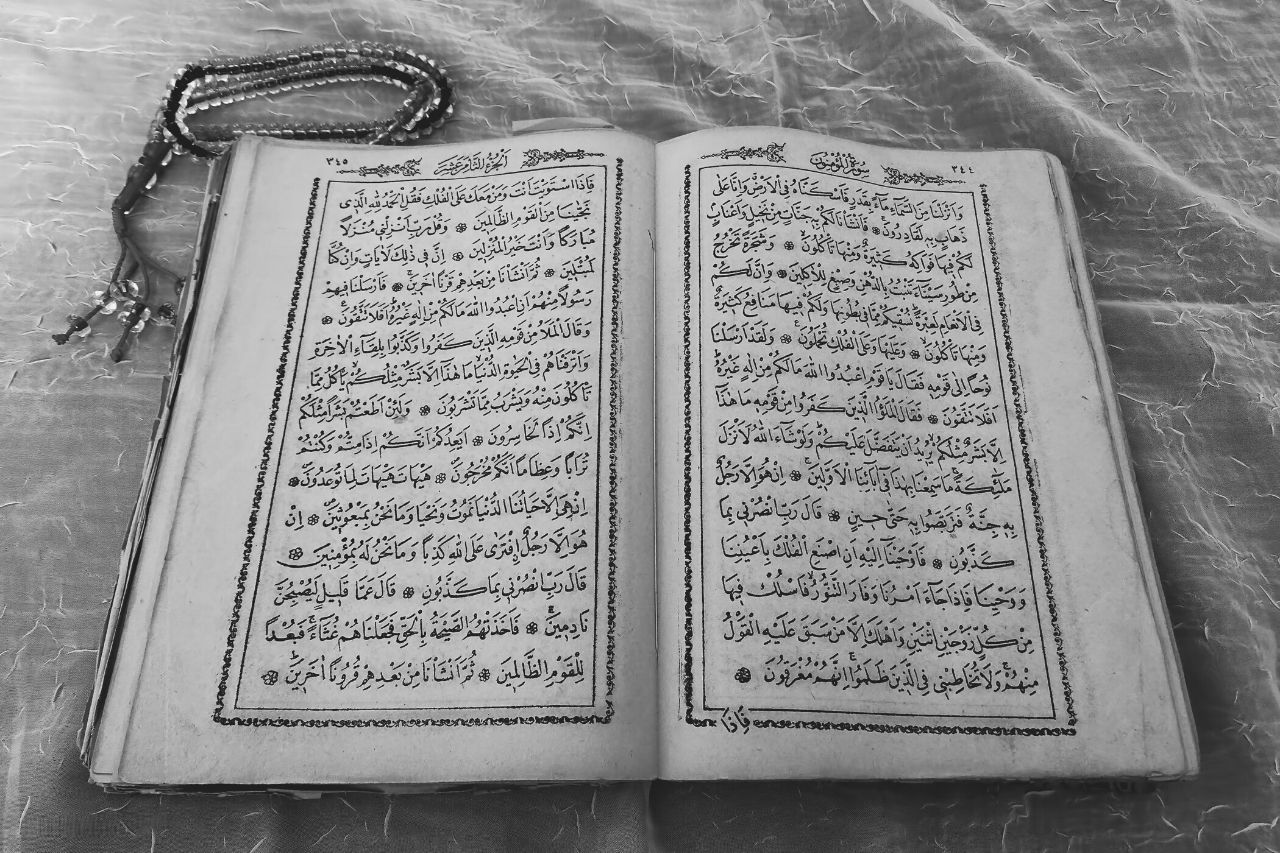 ٣٤٤
سُورَةُ الْمُؤْمِنُونَ
وَاَنْزَلْنَا مِنَ السَّمَٓاءِ مَٓاءً بِقَدَرٍ فَاَسْكَنَّاهُ فِي الْاَرْضِ وَاِنَّا عَلٰى
ذَهَابٍ بِهِ لَقَادِرُونَ ۞ فَاَنْشَاْنَا لَكُمْ بِهِ جَنَّاتٍ مِنْ نَخِيلٍ وَاَعْنَابٍ
لَكُمْ فِيهَا فَوَاكِهُ كَثِيرَةٌ وَمِنْهَا تَاْكُلُونَ ۞ وَشَجَرَةً تَخْرُجُ
مِنْ طُورِ سَيْنَٓاءَ تَنْبُتُ بِالدُّهْنِ وَصِبْغٍ لِلْاٰكِلِينَ ۞ وَاِنَّ لَكُمْ
فِي الْاَنْعَامِ لَعِبْرَةً نُسْقِيكُمْ مِمَّا فِي بُطُونِهَا وَلَكُمْ فِيهَا مَنَافِعُ كَثِيرَةٌ
وَمِنْهَا تَاْكُلُونَ ۞ وَعَلَيْهَا وَعَلَى الْفُلْكِ تُحْمَلُونَ ۞ وَلَقَدْ اَرْسَلْنَا
نُوحًا اِلٰى قَوْمِهِ فَقَالَ يَا قَوْمِ اعْبُدُوا اللّٰهَ مَا لَكُمْ مِنْ اِلٰهٍ غَيْرُهُ
اَفَلَا تَتَّقُونَ ۞ فَقَالَ الْمَلَؤُا الَّذِينَ كَفَرُوا مِنْ قَوْمِهِ مَا هٰذَٓا
اِلَّا بَشَرٌ مِثْلُكُمْ يُرِيدُ اَنْ يَتَفَضَّلَ عَلَيْكُمْ وَلَوْ شَٓاءَ اللّٰهُ لَاَنْزَلَ
مَلٰٓئِكَةً مَا سَمِعْنَا بِهٰذَا فِي اٰبَٓائِنَا الْاَوَّلِينَ ۞ اِنْ هُوَ اِلَّا رَجُلٌ
بِهِ جِنَّةٌ فَتَرَبَّصُوا بِهِ حَتّٰى حِينٍ ۞ قَالَ رَبِّ انْصُرْنِي بِمَا
كَذَّبُونِ ۞ فَاَوْحَيْنَٓا اِلَيْهِ اَنِ اصْنَعِ الْفُلْكَ بِاَعْيُنِنَا
وَوَحْيِنَا فَاِذَا جَٓاءَ اَمْرُنَا وَفَارَ التَّنُّورُ فَاسْلُكْ فِيهَا
مِنْ كُلٍّ زَوْجَيْنِ اثْنَيْنِ وَاَهْلَكَ اِلَّا مَنْ سَبَقَ عَلَيْهِ الْقَوْلُ
مِنْهُمْ وَلَا تُخَاطِبْنِي فِي الَّذِينَ ظَلَمُوا اِنَّهُمْ مُغْرَقُونَ ۞
فَاِذَا
اَلْجُزْءُ الثَّامِنَ عَشَرَ
٣٤٥
فَاِذَا اسْتَوَيْتَ اَنْتَ وَمَنْ مَعَكَ عَلَى الْفُلْكِ فَقُلِ الْحَمْدُ لِلّٰهِ الَّذِي
نَجّٰينَا مِنَ الْقَوْمِ الظَّالِمِينَ ۞ وَقُلْ رَبِّ اَنْزِلْنِي مُنْزَلًا
مُبَارَكًا وَاَنْتَ خَيْرُ الْمُنْزِلِينَ ۞ اِنَّ فِي ذٰلِكَ لَاٰيَاتٍ وَاِنْ كُنَّا
لَمُبْتَلِينَ ۞ ثُمَّ اَنْشَاْنَا مِنْ بَعْدِهِمْ قَرْنًا اٰخَرِينَ ۞ فَاَرْسَلْنَا فِيهِمْ
رَسُولًا مِنْهُمْ اَنِ اعْبُدُوا اللّٰهَ مَا لَكُمْ مِنْ اِلٰهٍ غَيْرُهُ اَفَلَا تَتَّقُونَ ۞
وَقَالَ الْمَلَاُ مِنْ قَوْمِهِ الَّذِينَ كَفَرُوا وَكَذَّبُوا بِلِقَٓاءِ الْاٰخِرَةِ
وَاَتْرَفْنَاهُمْ فِي الْحَيٰوةِ الدُّنْيَا مَا هٰذَٓا اِلَّا بَشَرٌ مِثْلُكُمْ يَاْكُلُ مِمَّا
تَاْكُلُونَ مِنْهُ وَيَشْرَبُ مِمَّا تَشْرَبُونَ ۞ وَلَئِنْ اَطَعْتُمْ بَشَرًا مِثْلَكُمْ
اِنَّكُمْ اِذًا لَخَاسِرُونَ ۞ اَيَعِدُكُمْ اَنَّكُمْ اِذَا مِتُّمْ وَكُنْتُمْ
تُرَابًا وَعِظَامًا اَنَّكُمْ مُخْرَجُونَ ۞ هَيْهَاتَ هَيْهَاتَ لِمَا تُوعَدُونَ ۞
اِنْ هِيَ اِلَّا حَيَاتُنَا الدُّنْيَا نَمُوتُ وَنَحْيَا وَمَا نَحْنُ بِمَبْعُوثِينَ ۞ اِنْ
هُوَ اِلَّا رَجُلٌ افْتَرٰى عَلَى اللّٰهِ كَذِبًا وَمَا نَحْنُ لَهُ بِمُؤْمِنِينَ ۞
قَالَ رَبِّ انْصُرْنِي بِمَا كَذَّبُونِ ۞ قَالَ عَمَّا قَلِيلٍ لَيُصْبِحُنَّ
نَادِمِينَ ۞ فَاَخَذَتْهُمُ الصَّيْحَةُ بِالْحَقِّ فَجَعَلْنَاهُمْ غُثَٓاءً فَبُعْدًا
لِلْقَوْمِ الظَّالِمِينَ ۞ ثُمَّ اَنْشَاْنَا مِنْ بَعْدِهِمْ قُرُونًا اٰخَرِينَ ۞